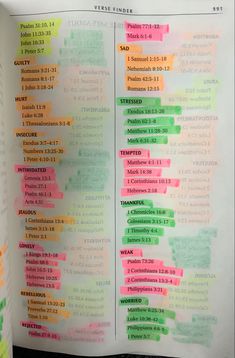 VERSE FINDER
991
Psalm 30:10, 14
John 11:33-35
John 16:33
1 Peter 5:7
GUILTY
Romans 3:21-31
Romans 8:1-17
1 John 3:18-24
HURT
Isaiah 11:9
Luke 6:28
1 Thessalonians 5:1-8
INSECURE
Exodus 3:7-4:17
Numbers 13:25-30
1 Peter 4:10-11
INTIMIDATED
Genesis 13:1
Psalm 27:1
Psalm 46:1-3
Acts 4:31
JEALOUS
1 Corinthians 13:4
James 3:13-18
1 Peter 2:1
LONELY
1 Kings 19:1-18
Psalm 68:6
John 16:5
Hebrews 10:25
Hebrews 13:5
REBELLIOUS
1 Samuel 15:22-23
Proverbs 27:22
Titus 1:10
REJECTED
Psalm 27:9-10
Psalm 77:1-12
Mark 6:1-6
SAD
1 Samuel 1:15-18
Nehemiah 8:10-12
Psalm 42:5-11
Romans 12:15
STRESSED
Exodus 18:13-26
Psalm 62:1-8
Matthew 11:28-30
Mark 6:31-32
TEMPTED
Matthew 4:1-11
Mark 14:38
1 Corinthians 10:13
Hebrews 2:18
THANKFUL
1 Chronicles 16:8
Colossians 3:15-17
1 Timothy 4:4
James 5:13
WEAK
Psalm 73:26
2 Corinthians 12:8-10
2 Corinthians 13:3-4
Philippians 3:21
WORRIED
Matthew 6:25-34
Luke 10:38-42
Philippians 4:6
1 Peter 5:7